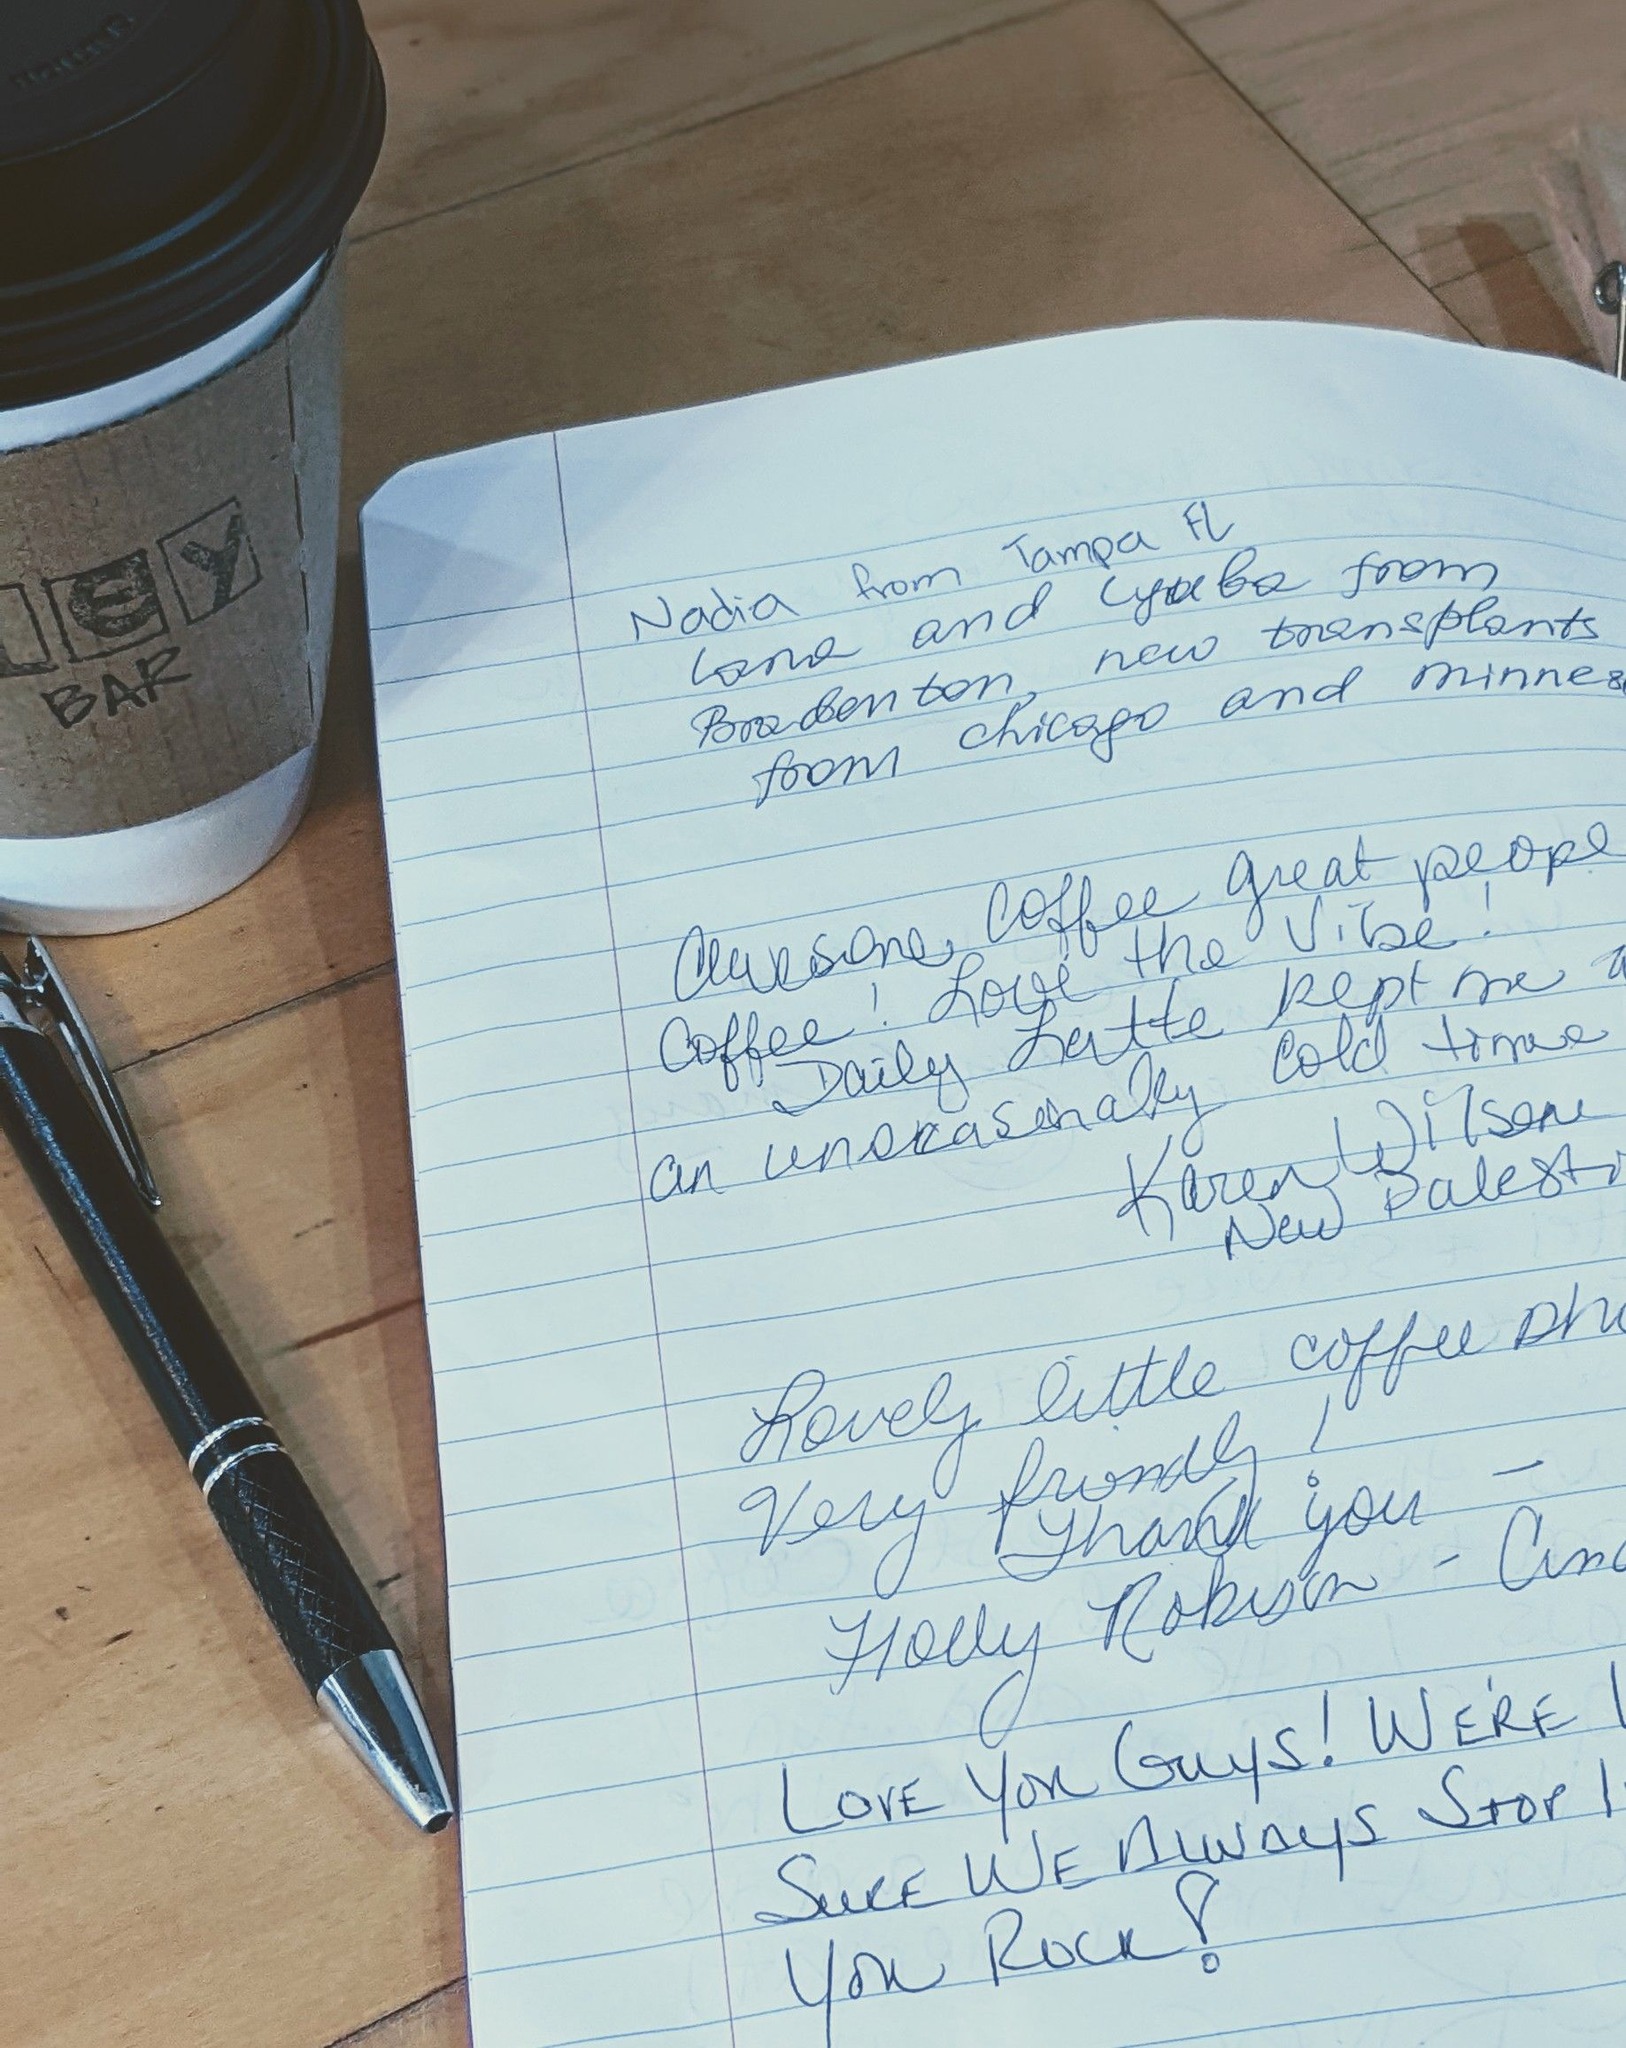 ey
BAR
Nadia from Tampa FL
Lana and Lyuba from
Bradenton, new transplants
from chicago and minnes
Awesome Coffee great peopl
Coffee! Love the Vibe!
Daily Latte kept me
an unseasonally cold time
Karen Wilson
New Palesti
Lovely little coffee sho
Very friendly!
Thank you -
Holly Robison - Cinc
LOVE YOU GUYS! WE'RE
SURE WE ALWAYS STOP I
YOU ROCK!